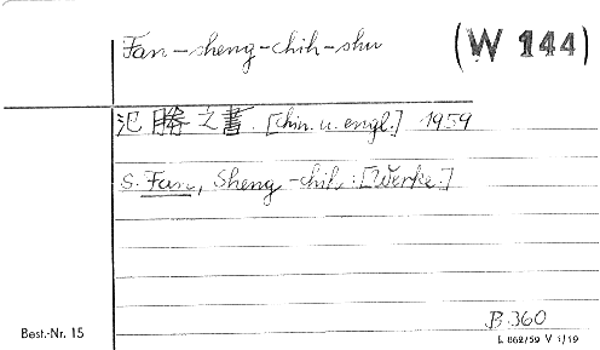 Fan-sheng-chih-shu (W 144)
氾勝之書. [chin. u. engl.] 1959
s. Fan, Sheng-chih: [Werke.]
B.360
Best.-Nr. 15
L 862/59 V 1/19